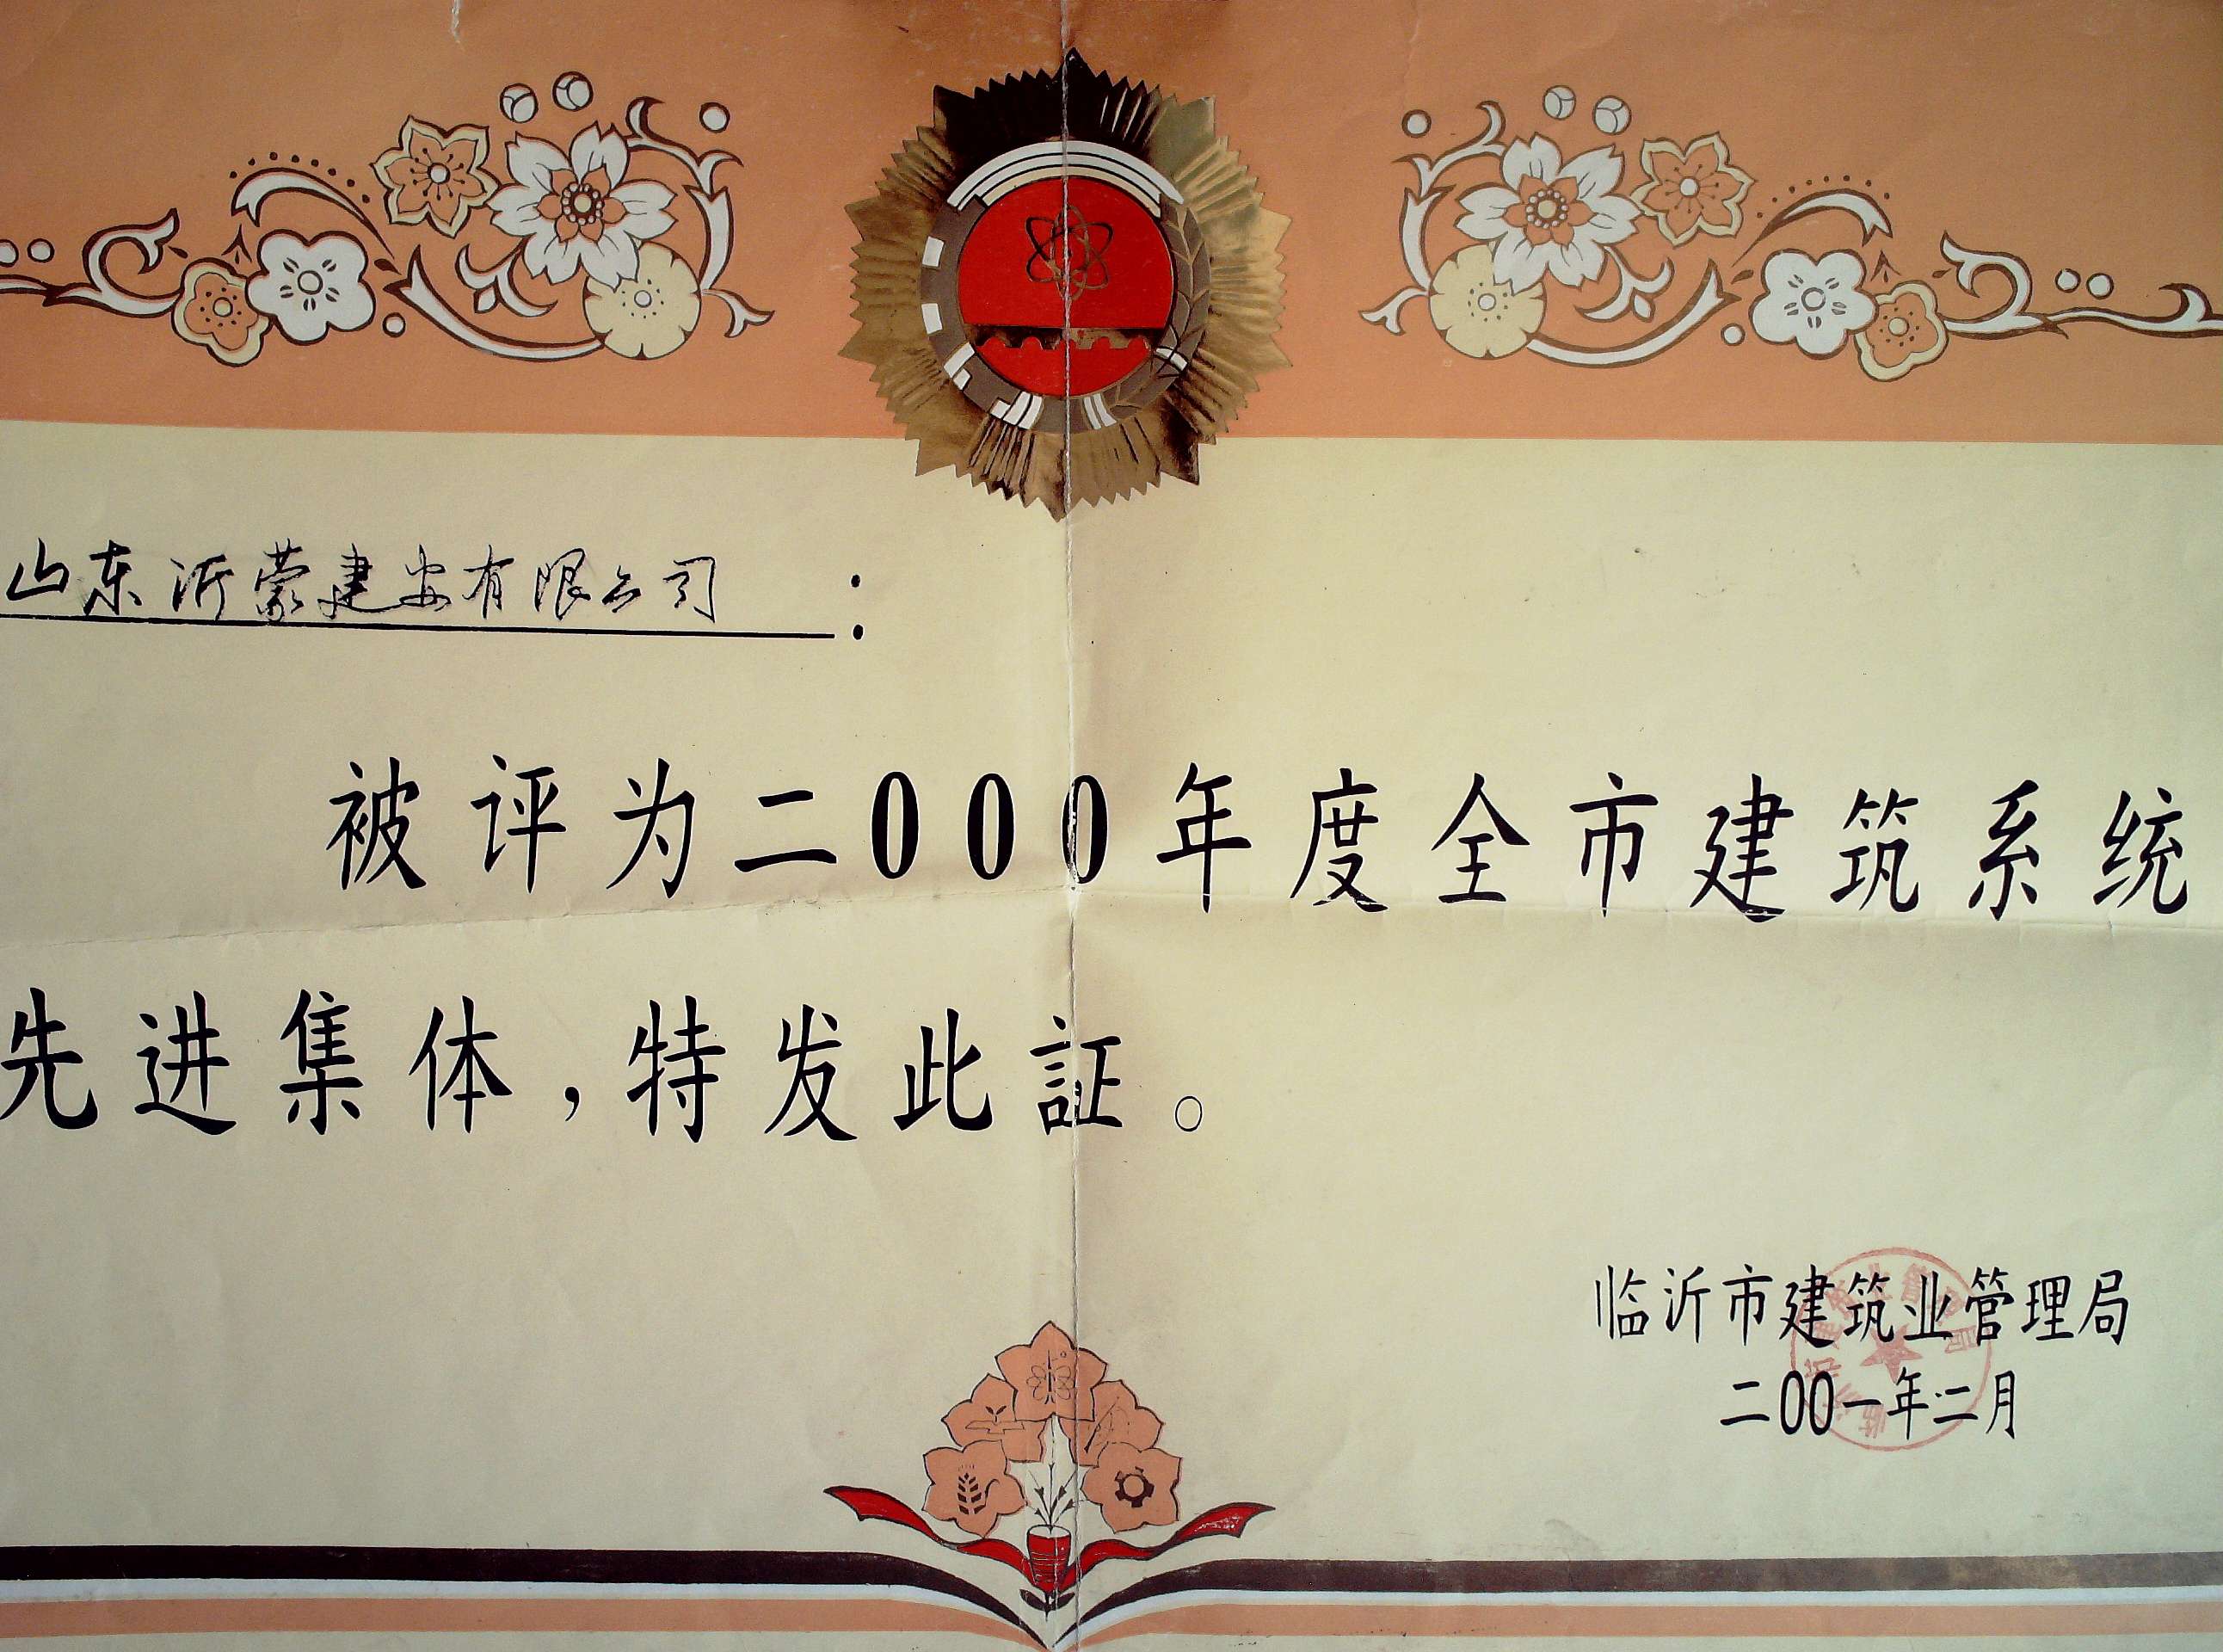 山东沂蒙建安有限公司：
被评为二000年度全市建筑系统
先进集体，特发此証。
临沂市建筑业管理局
二00一年二月